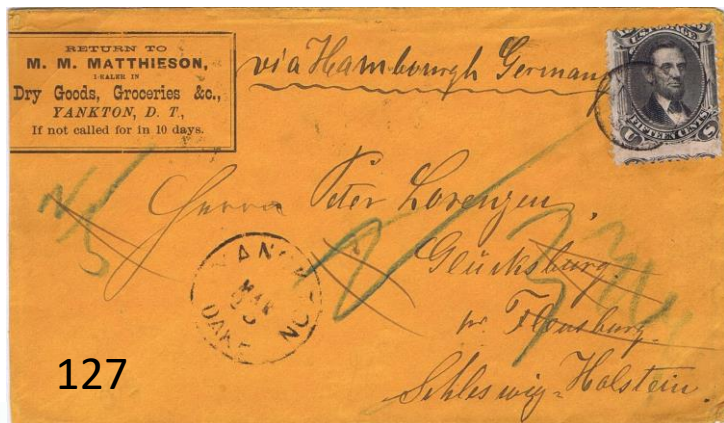 RETURN TO
M. M. MATTHIESON,
DEALER IN
Dry Goods, Groceries &c.,
YANKTON, D. T.,
If not called for in 10 days.
via Hambourgh Germany
U.S. POSTAGE
FIFTEEN CENTS
U S
Herrn Peter Lorenzen,
Glücksburg.
pr Flensburg.
Schleswig=Holstein.
YANKTON
MAR
DAK
127